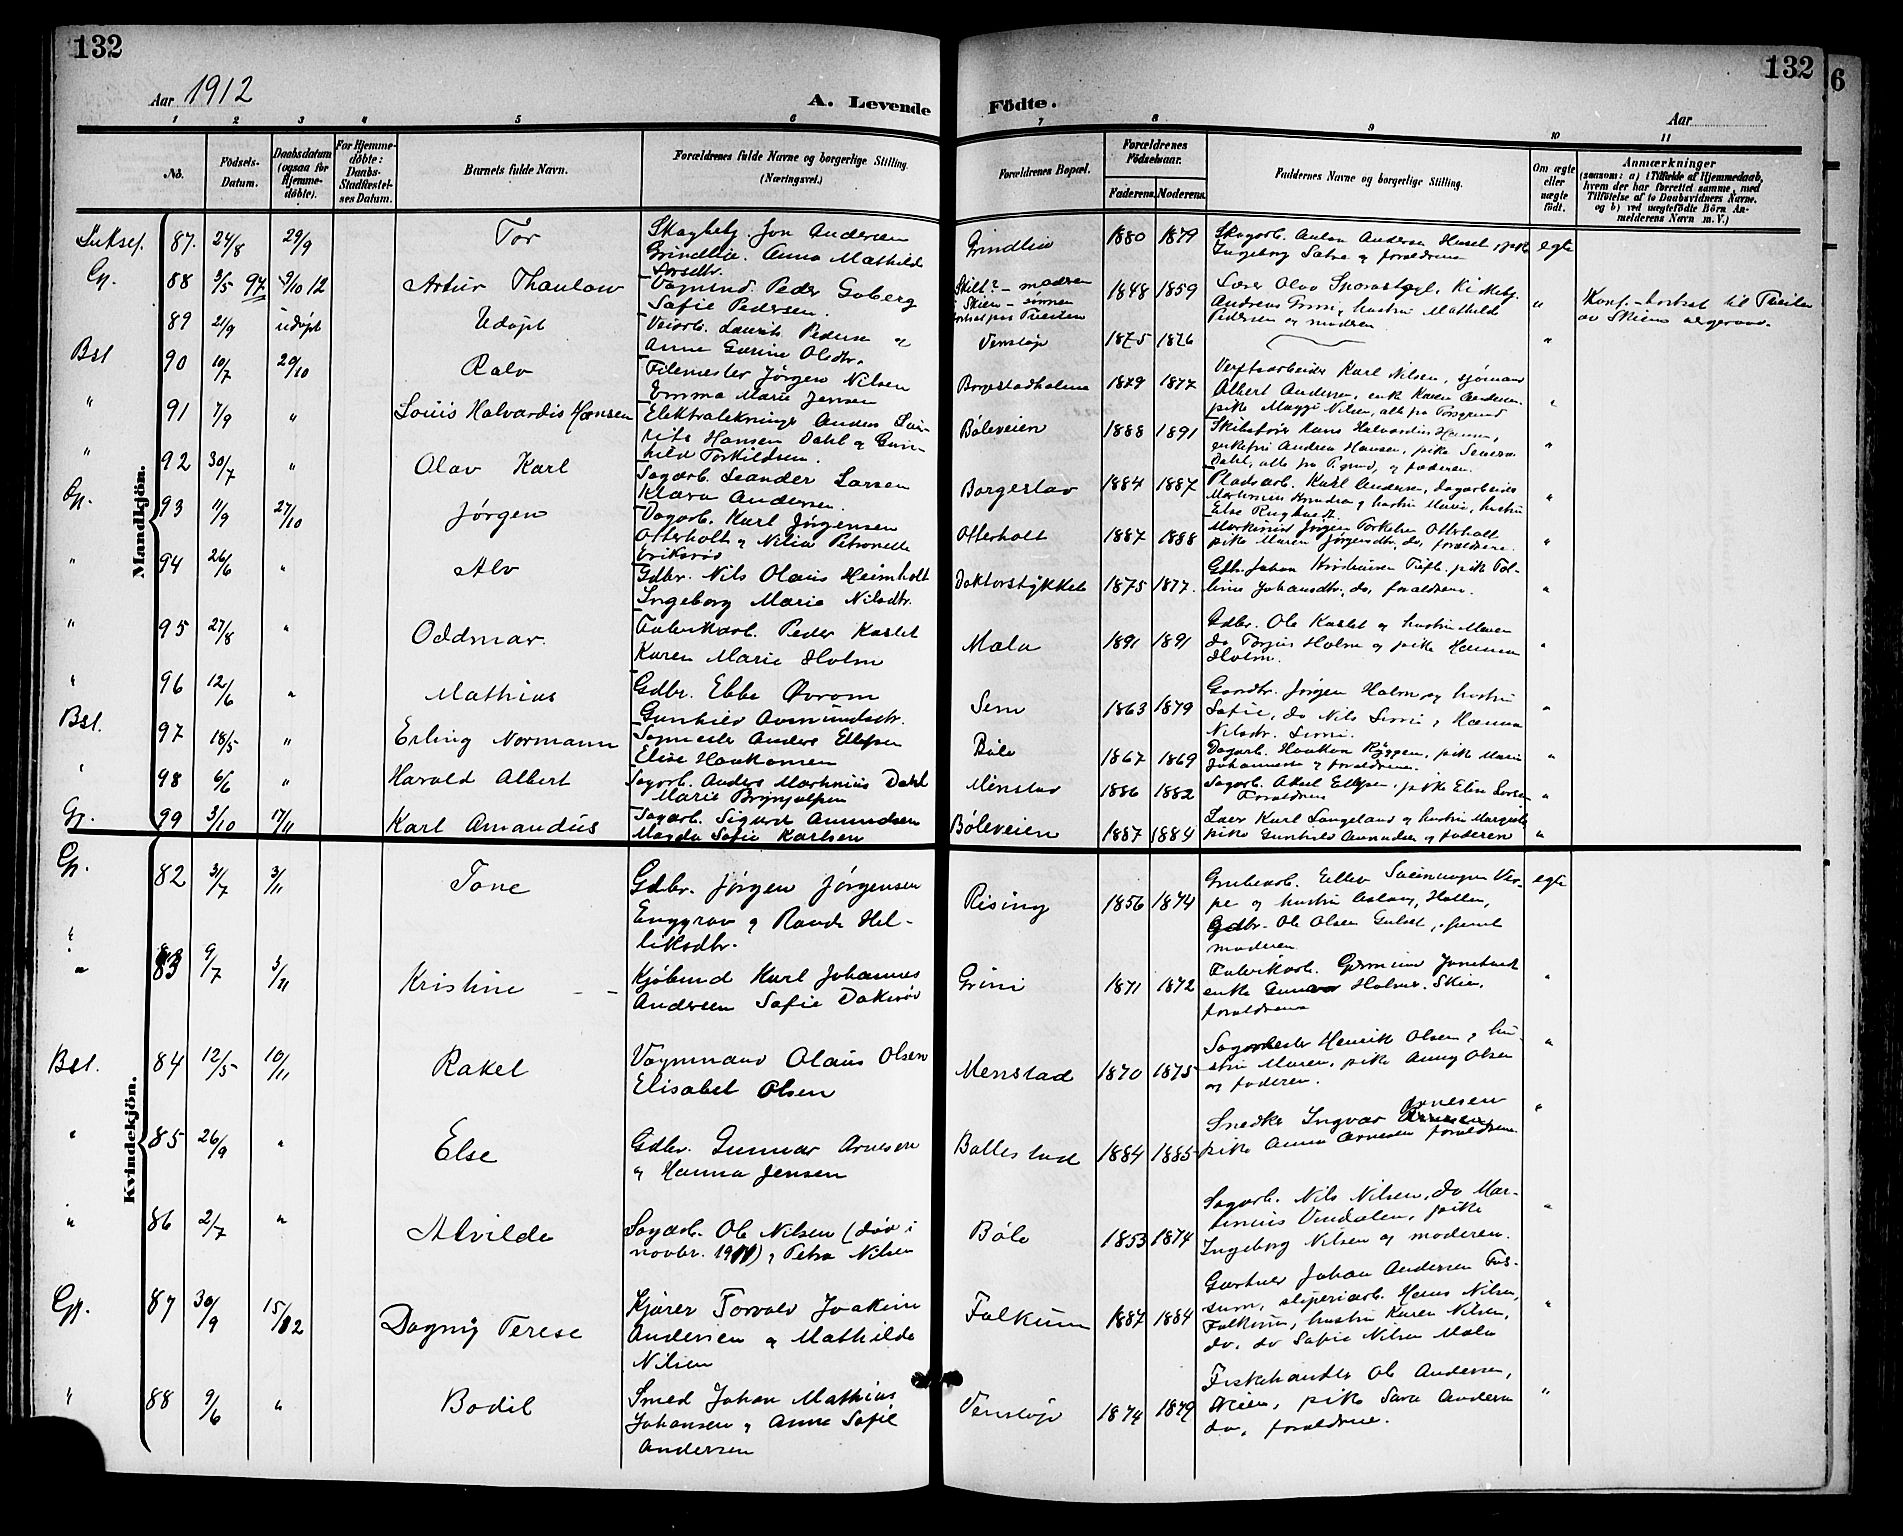 132
132
6
Aar 1912
A. Levende
Födte.
Aar
1 2 3 4 5 6 7 8 9 10 11
No.
Födsels-
Datum.
Daabsdatum
(ogsaa for
Hjemme-
døbte).
For Hjemme-
døbte:
Daabs-
Stadfæstel-
ses Datum.
Barnets fulde Navn.
Forældrenes fulde Navne og borgerlige Stilling.
(Næringsvei.)
Forældrenes Bopæl.
Forældrenes
Födselsaar.
Faderens. Moderens.
Faddernes Navne og borgerlige Stilling.
Om ægte
eller
uægte
født.
Anmærkninger
(saasom: a) i Tilfælde af Hjemmedaab,
hvem der har forrettet samme, med
Tilföielse af to Daabsvidners Navne,
og b) ved uægtefødte Börn An-
melderens Navn m. V.)
Mandkjön.
87. 24/8 29/9 Tor
Skogbetj. Jon Andersen
Grindlia. Anna Mathilde
Grindlia 1880 1879
Skogarb. Anton Andersen
Ingeborg forældrene egte
Gp. 88 3/5 97 9/10 12 Artur Thaulow
Vognmd. Peder Goberg
Sofie Pedersen.
Skien - sønnen
1848 1859
Andreas Grini, hustru Mathilde
Pedersen og modren
89 21/9 udøpt Udøpt
Veiarb. Laurits Pedersen og
Anne Gurine Olsdtr.
Venstøp 1875 1876 "
Bst 90 10/7 20/10 Ralv
Filemester Jørgen Nilsen
Emma Marie Jensen
Borgestadholmen 1879 1877
Verftsarbeider Karl Nilsen, sjømand
Albert Andersen, enke Karen Andersen
pike Maggi Nilsen, alle fra Porsgrund "
" 91 7/9 " Louis Halvardis Hansen
Anders Lau-
rits Hansen Dahl og Gun-
hild Torkildsen.
Bøleveien 1888 1891
Hans Halvardus Hansen,
enkefru Andrea Hansen, pike Severa
Dahl, alle fra P.grund, og faderen. "
" 92 30/7 " Olav Karl
Sagarb. Leander Larsen
Klara Andersen.
Borgestad 1884 1887
Pladsarb. Karl Andersen, dagarbeider
hustru Marie, hustru
Else "
Gp. 93 11/9 27/10 Jørgen
Dagarb. Karl Jørgensen
Otterholt og Nilia Petronelle
Eriksrød
Otterholt 1887 1888
Jørgen Torkelsen Otterholt
pike Maren Jørgensdtr, do, forældrene. "
" 94 26/6 " Alv
Gdbr. Nils Olaus Heimholt
Ingeborg Marie Nilsdtr.
Doktorstykket 1875 1877.
Gdbr. Johan Kristiansen pike Tol-
line Johansdtr. do, forældrene. "
" 95 27/8 " Oddmar.
Fabrikarb. Peder Kastet
Karen Marie Holm
Mæla 1891 1891
Gdbr. Ole Kastet og hustru Maren
do Torjus Holm og pike Hanna
Holm. "
" 96 12/6 " Mathias
Gdbr. Ebbe Øvrom
Gunhild Aamundsdtr.
Sem 1863 1879
Gaardbr. Jørgen Holm og hustru
Sofie, do Nils Semi, Hanna
Nilsdtr. Semi. "
Bst. 97 18/5 " Erling Normann
Sagmester Anders Ellefsen
Elise Haakonsen
Bøle 1867 1869
Dagarb. Haakon Ryggen, pike Marie
Johannesen og forældrene. "
" 98 6/6 " Harald Albert
Sagarb. Anders Martinius Dahl
Marie Brynjulfsen
Menstad 1886 1882
Sagarb. Aksel Ellefsen, pike Elin Larsen
Forældrene "
Gp. 99 3/10 17/11 Karl Amandus
Sagarb. Sigurd Amundsen
Magda Sofie Karlsen
Bøleveien 1887 1884
Karl Langeland og hustru
pike Gunhild Amundsen og faderen "
Kvindekjön.
Gp. 82 31/7 3/11 Tone
Gdbr. Jørgen Jørgensen
Enggrav og Ronda Hel-
liksdtr.
Rising 1856 1874
Grubearb. Ellev Sveinungsen Ver-
pe og hustru Aslaug, Hollen,
Gdbr. Ole Olsen Gulset, samt
moderen egte
" 83 9/7 3/11 Kristine
Kjøbmd Karl Johannes
Andersen Sofie Dokerød
Grini 1871 1872
Fabrikarb.
enke Holmer. Skien,
forældrene "
Bst. 84 12/5 10/11 Rakel
Vognmand Olaus Olsen
Elisabet Olsen
Menstad 1870 1875
Sagmester Henrik Olsen, hu-
stru Maren, pike Anny Olsen
og faderen. "
" 85 26/9 " Else
Gdbr. Gunnar Arnesen
og Hanna Jensen
Ballestad 1884 1885
Snedker Ingvar Arnesen
pike Anna Arnesen forældrene. "
" 86 2/7 " Alvilde
Sagarb. Ole Nilsen (død i
novbr. 1911) og Petra Nilsen
Bøle 1853 1874
Sagarb. Nils Nilsen, do Mar-
tinius Vindalen, pike
Ingeborg Nilsen og moderen. "
Gp. 87 30/9 15/12 Dagny Terese
Kjører Torvald Joakim
Andersen og Mathilde
Nilsen
Falkum 1887 1884
Gartner Johan Andersen Fos-
sum, sliperiarb. Hans Nilsen,
Falkum, hustru Karen Nilsen,
do, do Sofie Nilsen Mæla "
" 88 9/6 " Bodil
Smed Johan Mathias
Johansen og Anna Sofie
Andersen
Venstøp 1874 1879
Fiskehandler Ole Andersen,
Skien, pike Sara Andersen
do, forældrene. "